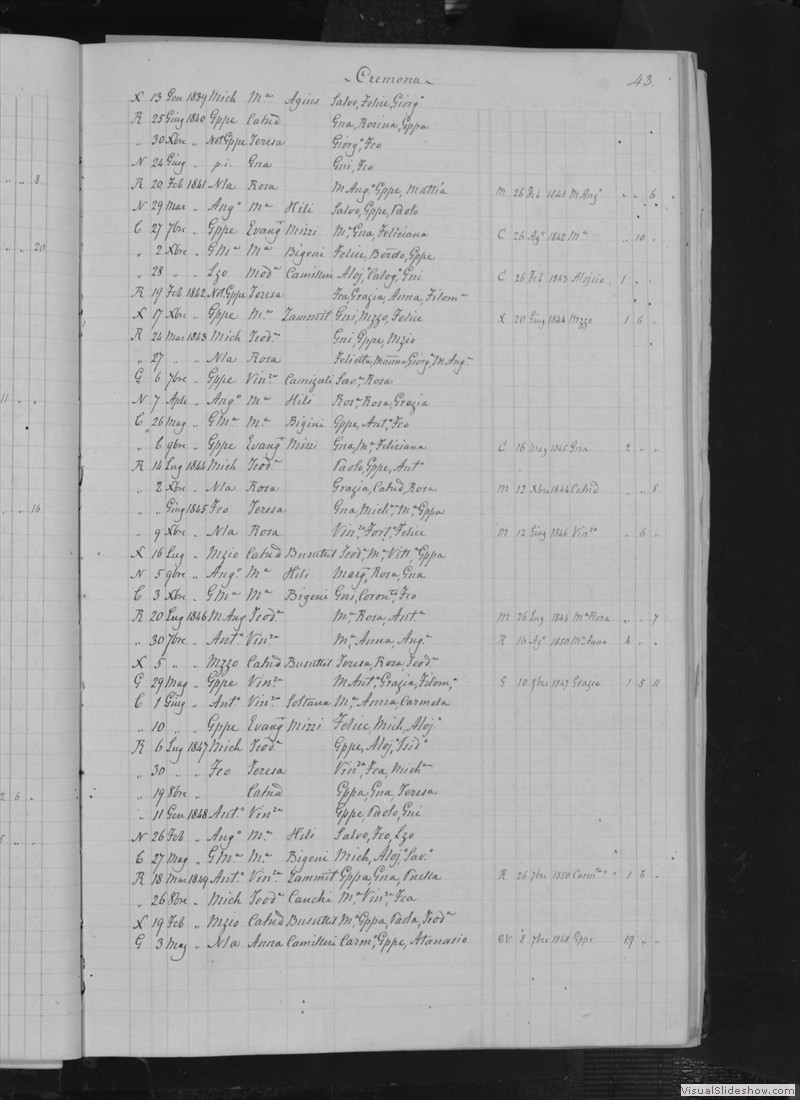 Cremona 43.
X 13 Gen 1839 Mich Mª Agius Salvo, Felice, Giorgº
R 25 Giug 1840 Gppe Catnd Gna, Rosina, Gppa
„ 30 Xbre „ Not Gppe Teresa Giorgº, Fco
N 24 Giug „ p.i. Gna Gni, Fco
„ „ 8
R 20 Feb 1841 Nla Rosa M Angº Gppe, Mattia M 26 Feb 1841 M Angº „ „ 6
N 29 Mar „ Angº Mª Hili Salvo, Gppe, Paolo
C 27 7bre „ Gppe Evangª Mizzi Mª, Gna, Feliciana C 26 Agº 1842 Mª „ 10 „
„ „ 20
„ 2 Xbre „ GMª Mª Bigeni Felice, Berdo, Gppe
„ 28 „ „ Lzo Modª Camilleri Alojº, Calogº, Gni C 26 Feb 1843 Alojsio 1 „ „
R 19 Feb 1842 Not Gppe Teresa Fca, Grazia, Anna, Filomª
X 17 Xbre „ Gppe Mª Zammit Gni, Mzzo, Felice X 20 Giug 1844 Mzzo 1 6 „
R 24 Mar 1843 Mich Teodª Gni, Gppe, Mzio
„ 27 „ „ Nla Rosa Felicita, Giorgº, M Angª
G 6 7bre „ Gppe Vinza Camizuli Savª Rosa
N 7 Aple „ Angº Mª Hili Rosª, Rosa, Grazia
11 „
C 26 Mag „ GMª Mª Bigini Gppe, Antº, Fco
„ 6 9bre „ Gppe Evangª Mizzi Gna, Mª, Feliciana C 16 Mag 1845 Gna 2 „ „
R 14 Lug 1844 Mich Teodª Paolo, Gppe, Antº
„ 2 Xbre „ Nla Rosa Grazia, Catnd, Rosa M 12 Xbre 1844 Catnd „ „ 8
„ „ 16
„ „ Giug 1845 Fco Teresa Gna, Michª, Mª, Gppa
„ 9 Xbre „ Nla Rosa Vinza, Fortª, Felice M 12 Giug 1846 Vinza „ 6 „
X 16 Lug „ Mzio Catnd Busuttil Teodª, Mª, Vittª, Gppa
N 5 9bre „ Angº Mª Hili Margª, Rosa, Gna
C 3 Xbre „ GMª Mª Bigeni Gni, Coronto, Fco
R 20 Lug 1846 M Ang Teodª Mª, Rosa, Antª M 26 Lug 1846 Mª Rosa „ „ 7
„ 30 7bre „ Antº Vinza Mª, Anna, Angª R 16 Agº 1850 Mª Anna 4 „ „
X 5 „ „ Mzzo Catnd Busuttil Teresa, Rosa, Teodª
G 29 Mag „ Gppe Vinza M Antª, Grazia, Filomª G 10 9bre 1847 Grazia 1 8 11
C 1 Giug „ Antº Vinza Soltana Mª, Anna, Carmela
„ 10 „ „ Gppe Evangª Mizzi Felice, Mich, Alojº
R 6 Lug 1847 Mich Teodª Gppe, Alojº, Isidº
„ 30 „ „ Fco Teresa Vinza, Fca, Michª
2 6 „
„ 19 8bre „ Catnd Gppa, Gna, Teresa
„ 11 Gen 1848 Antº Vinza Gppe, Paolo, Gni
5 „
N 26 Feb „ Angº Mª Hili Salvo, Fco, Lzo
C 27 Mag „ GMª Mª Bigeni Mich, Alojº, Savº
R 18 Mar 1849 Antº Vinza Zammit Gppa, Gna, R 26 7bre 1850 1 6 „
„ 26 8bre „ Mich Teodª Cauchi Mª, Vinza, Fca
X 19 Feb „ Mzio Catnd Busuttil Mª, Gppa, Paola, Teodª
G 3 Mag „ Nla Anna Camilleri Carmº, Gppe, Atanasio 8 7bre 1868 Gppe 19 „ „
VisualSlideshow.com